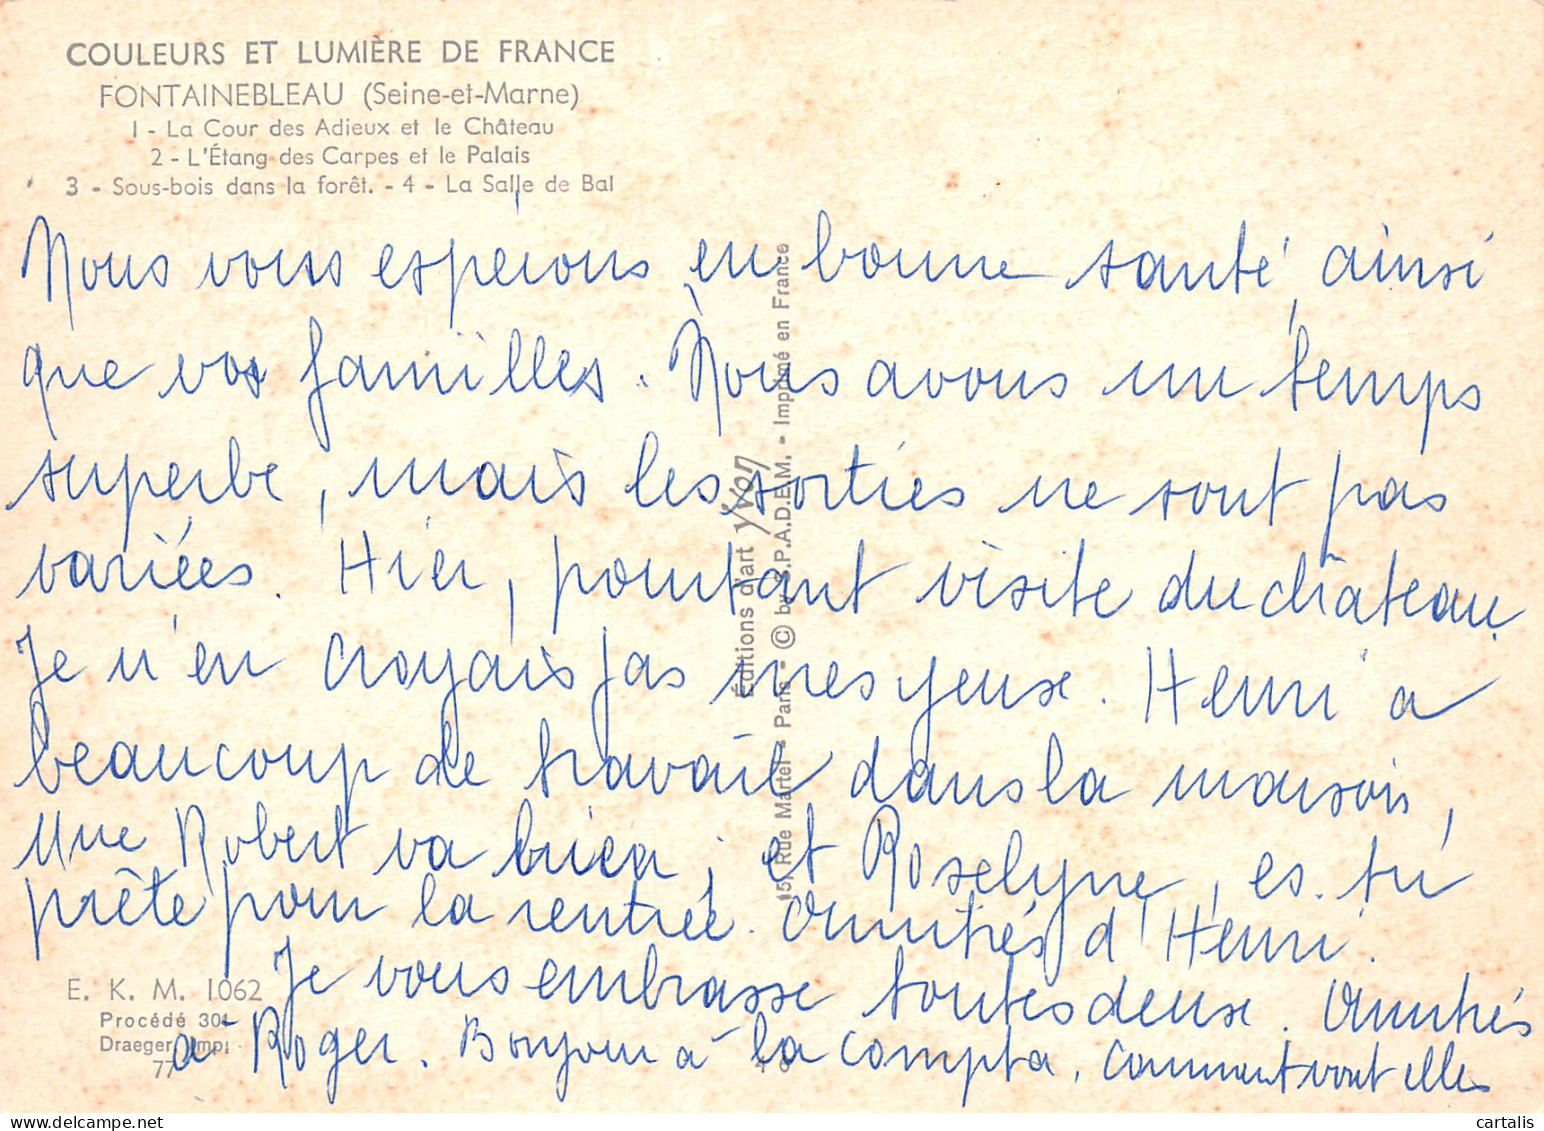 COULEURS ET LUMIÈRE DE FRANCE
FONTAINEBLEAU (Seine-et-Marne)
1 - La Cour des Adieux et le Château
2 - L'Étang des Carpes et le Palais
3 - Sous-bois dans la forêt. - 4 - La Salle de Bal
Nous vous espérons en bonne santé, ainsi
que vos familles. Nous avons un temps
superbe, mais les sorties ne sont pas
variées. Hier, pourtant visite du château.
Je n'en croyais pas mes yeux. Henri a
beaucoup de travail dans la maison,
une Robert va bien, et Roselyne, es-tu
prête pour la rentrée. Amitiés d'Henri.
Je vous embrasse toutes deux. Amitiés
à Roger. Bonjour à la compta, comment vont elles
Éditions d'art Yvon
15, Rue Martel - Paris - © by S.P.A.D.E.M. - Imprimé en France
E. K. M. 1062
Procédé 301
Draeger, Imp.
77
cartalis